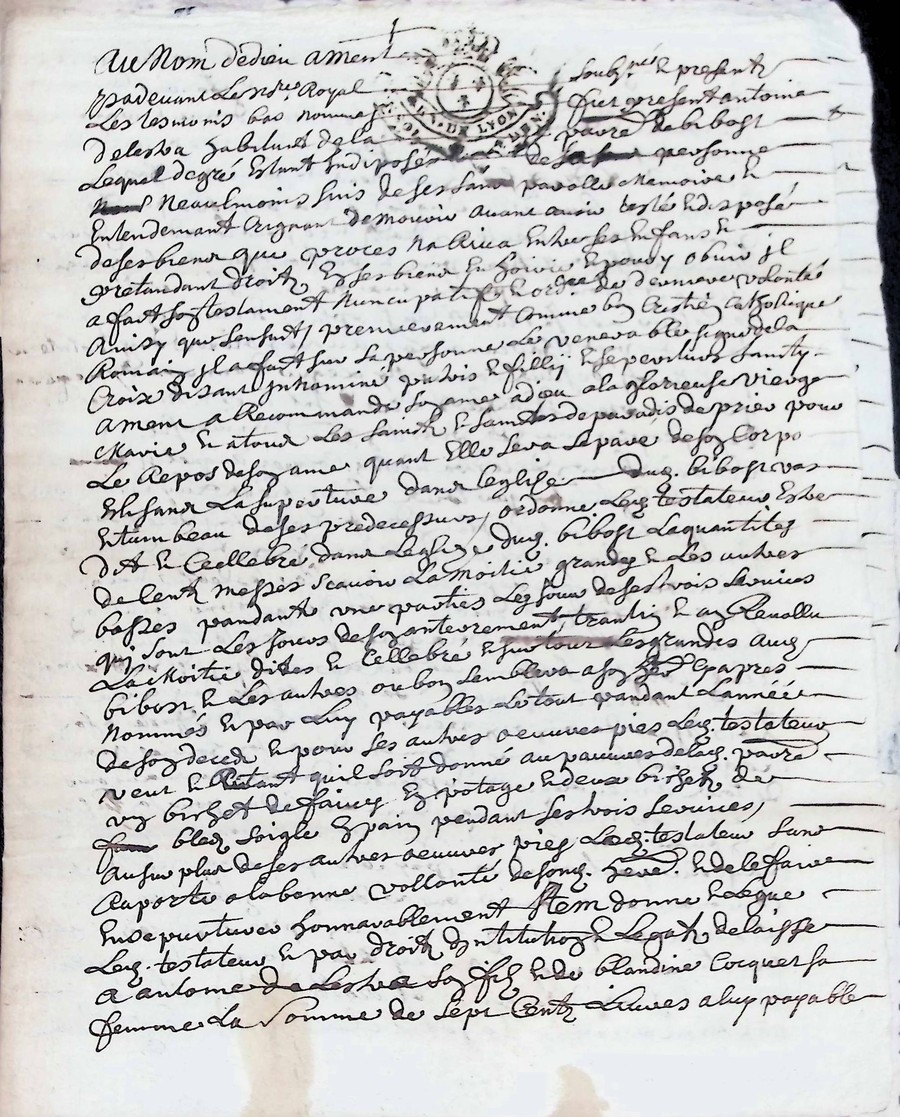 Au Nom de dieu ament
pardevant Le no.re Royal soub.né & presentz
Les tesmoins bas nommes fut present antoine
delestra habitant de la parr.e de bibost
Lequel de gré Estant Indisposé de sa personne
Neaulmoins sain de ses sans parolle Memoire &
Entendement Crignant de mourir avant avoir testé & disposé
de ses biens que proces Narriva Entre ses Enfans &
pretandant droitz Ez ses biens En hoirie & pour y obvier jl
a fait son testament nuncupatif & ord.ce de derniere volonté
Ainsy que sensuit / premierement Comme bon Cristien Catholique
Romain jl a fait sur sa personne Le venerable signe de la
Croix disant In Nomine patris & fillij & sperittus santy
ament a Recommandé son ame a dieu a la glorieuse vierge
Marie & a tous Les saincts & sainctes de paradis de prier pour
Le Repos de son ame quant Elle sera separe de son Corps
Elisant La sepurture dans leglise dud. bibost
& tumbeau de ses predecesseurs / ordonne Led. testateur Estre
Dit & Cellebré dans Leglize dud. bibost La quantités
de Centz messes scavoir La moitie grandes & Les autres
basses pandant une parties Les jours de ses trois services
quj sont Les jours de son anterrement, trantin & an Revollu
La Moitie dittes & Cellebré Les grandes aud.
bibost & Les autres ou bon semblera a son cy apres
Nommés & par Luy payables Le tout pandant Lannéé
de son deced & pour ses autres oeuvres pies Led. testateur
veut & Entant quil soit donné au pauvres de lad. parr.e
un bichet de faives En potage & deux bichetz de
bled soigle En pain pendant ses trois services /
au sur plus de ses autres oeuvres pies Led. testateur sans
Raporte a la bonne vollonté de sond. here. & de le faire
Ensepurturer honnorablement Item donne & Legue
Led. testateur & par droitz dintitution & Legatz delaisse
a antoine de Lestra son filz & de blandine Cocquet sa
femme La somme de sept Centz Livres a luy payable